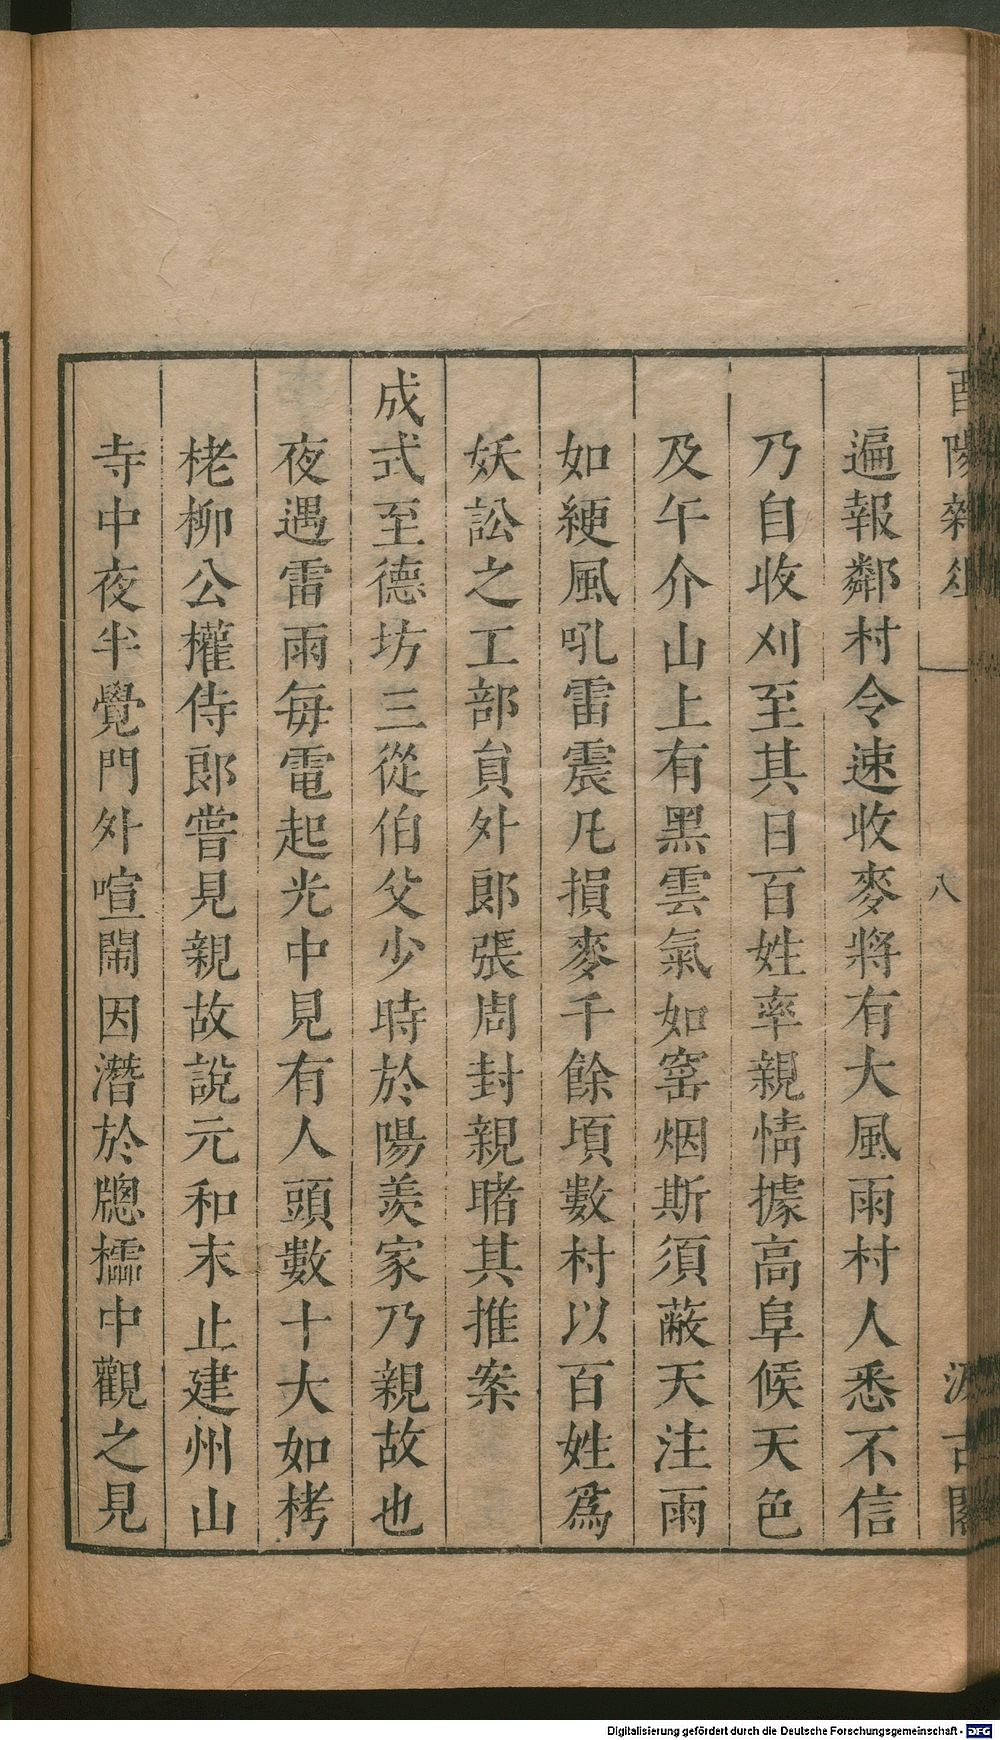 酉陽雜俎
八
汲古閣
遍報鄰村令速收麥將有大風雨村人悉不信
乃自收刈至其日百姓率親情據高阜候天色
及午介山上有黑雲氣如窑烟斯須蔽天注雨
如綆風吼雷震凡損麥千餘頃數村以百姓爲
妖訟之工部貟外郎張周封親睹其推案
成式至德坊三從伯父少時於陽羨家乃親故也
夜遇雷雨每電起光中見有人頭數十大如栲
栳柳公權侍郎嘗見親故說元和末止建州山
寺中夜半覺門外喧閙因潛於牕檽中觀之見
Digitalisierung gefördert durch die Deutsche Forschungsgemeinschaft - DFG